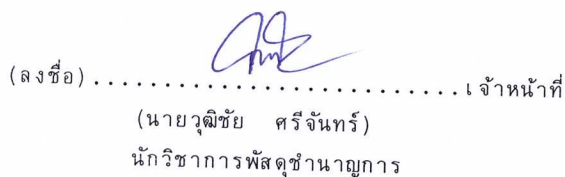 (ลงชื่อ)............................เจ้าหน้าที่
(นายวุฒิชัย ศรีจันทร์)
นักวิชาการพัสดุชำนาญการ